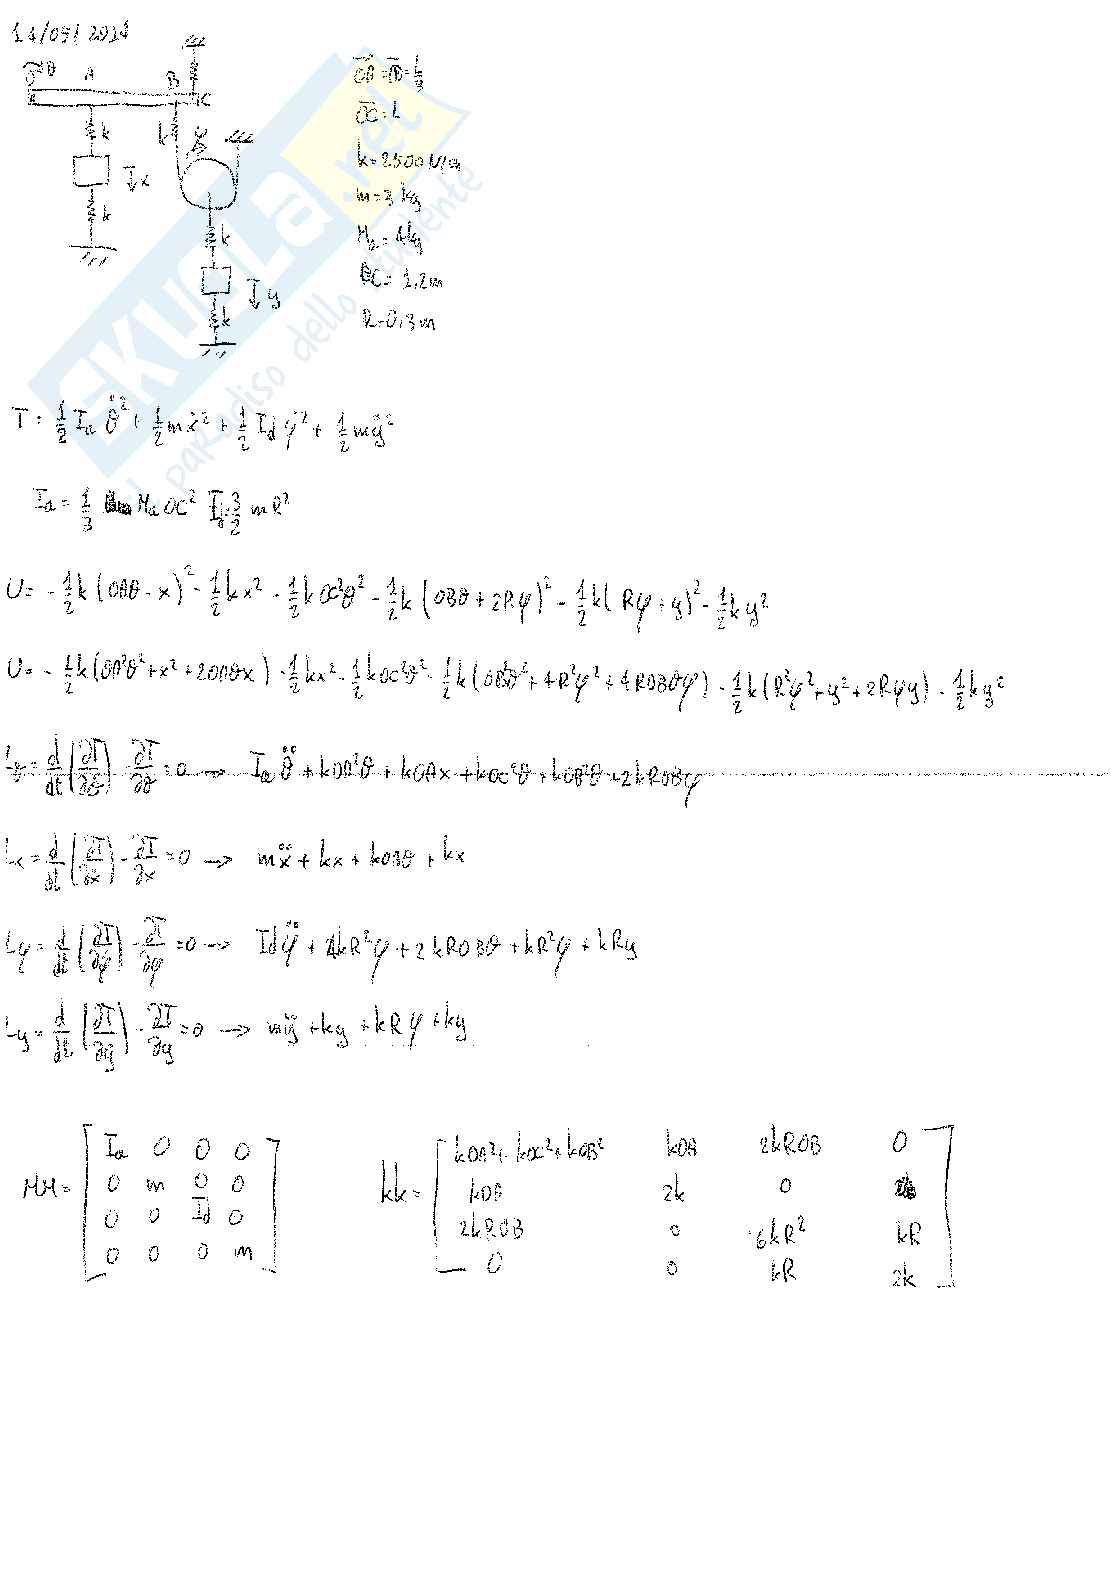 14/09/2014
θ A B C
k k
x
k
φ
k
y
k
OA=AB=L/3
OC=L
k=2500 N/m
m=3 kg
Ma=4kg
OC=1,2m
R=0,3m
SKUOLA.net
il paradiso dello studente
T = 1/2 Ia θ̈² + 1/2 mẋ² + 1/2 Id φ̇² + 1/2 mẏ²
Ia = 1/3 Ma OC² Id=3/2 mR²
U= -1/2k(OAθ-x)² - 1/2kx² - 1/2kOC²θ² - 1/2k(OBθ+2Rφ)² - 1/2k(Rφ+y)² - 1/2ky²
U= -1/2k(OA²θ²+x²+2OAθx) - 1/2kx² - 1/2kOC²θ² - 1/2k(OB²θ²+4R²φ²+4ROBθφ) - 1/2k(R²φ²+y²+2Rφy) - 1/2ky²
Lθ = d/dt(∂T/∂θ) - ∂T/∂θ = 0 → Iaθ̈ + kOA²θ + kOAx + kOC²θ + kOB²θ + 2kROBφ
Lx = d/dt(∂T/∂x) - ∂T/∂x = 0 → mẍ + kx + kOAθ + kx
Lφ = d/dt(∂T/∂φ) - ∂T/∂φ = 0 → Idφ̈ + 4kR²φ + 2kROBθ + kR²φ + kRy
Ly = d/dt(∂T/∂y) - ∂T/∂y = 0 → mÿ + ky + kRφ + ky
MM = [ Ia 0 0 0
0 m 0 0
0 0 Id 0
0 0 0 m ]
kk = [ kOA²+kOC²+kOB² kOA 2kROB 0
kOA 2k 0
2kROB 0 6kR² kR
0 0 kR 2k ]